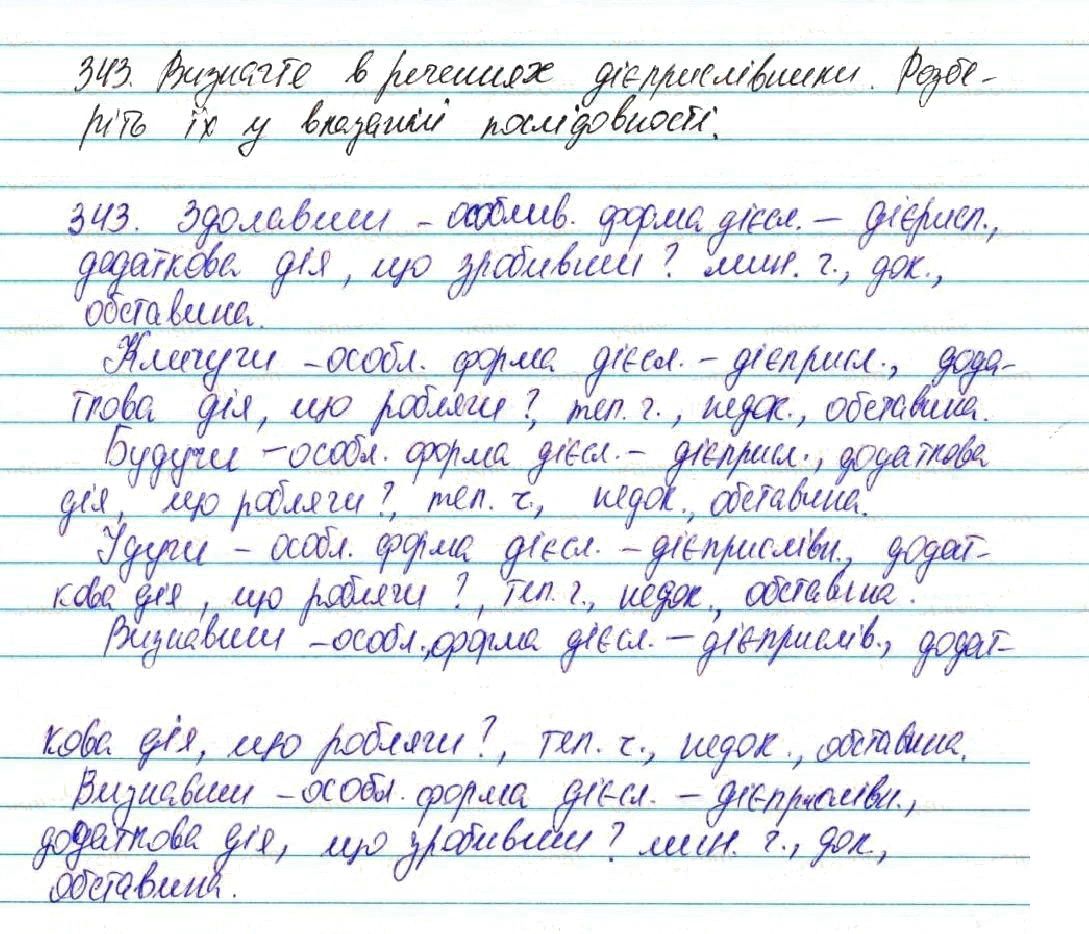 343. Визначте в реченнях дієприслівники. Розбе-
ріть їх у вказаній послідовності.
343. Здолавши – особлив. форма дієсл. – дієрисп.,
додаткова дія, що зробивши? мин. ч., док.,
обставина.
Кличучи – особл. форма дієсл. – дієприсл., дода-
ткова дія, що роблячи?, теп. ч., недок., обставина.
Будучи – особл. форма дієсл. – дієприсл., додаткова
дія, що роблячи?, теп. ч., недок., обставина.
Ідучи – особл. форма дієсл. – дієприслівн., додат-
кова дія, що роблячи?, теп. ч., недок., обставина.
Визнавши – особл., форма дієсл. – дієприслів., додат-
кова дія, що роблячи?, теп. ч., недок., обставина.
Визнавши – особл. форма дієсл. – дієприслівн.,
додаткова дія, що зробивши? мин. ч., док.,
обставина.